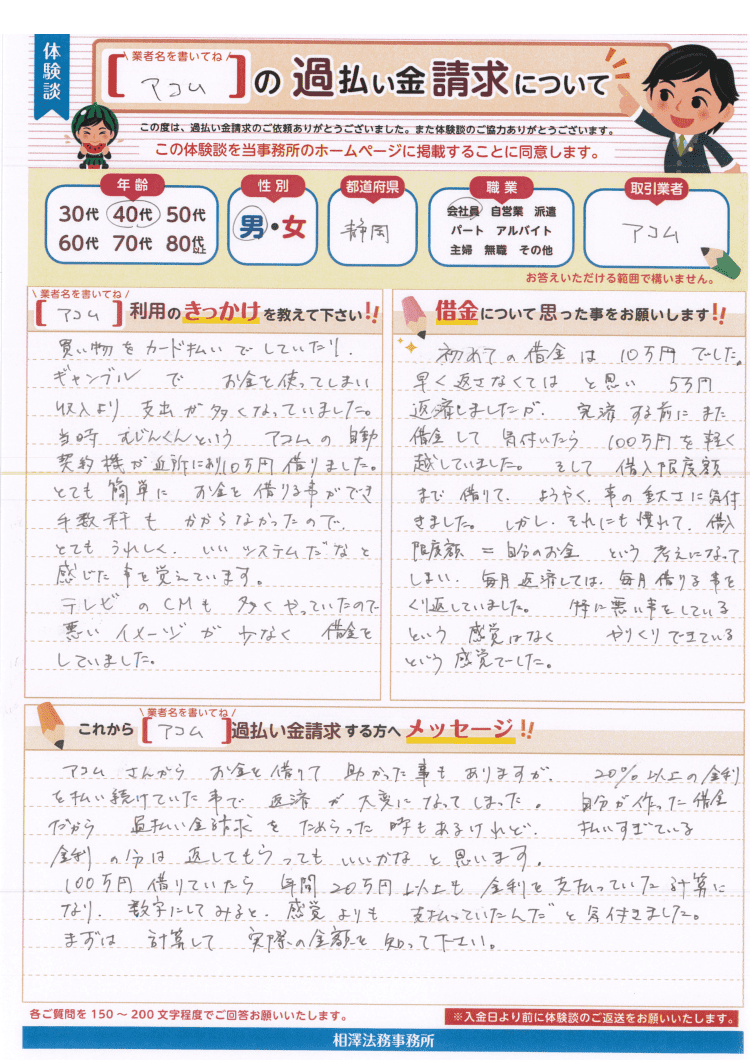 体験談
業者名を書いてね
[アコム]の過払い金請求について
この度は、過払い金請求のご依頼ありがとうございました。また体験談のご協力ありがとうございます。
この体験談を当事務所のホームページに掲載することに同意します。
年齢
30代 40代 50代
60代 70代 80代以上
性別
男・女
都道府県
静岡
職業
会社員 自営業 派遣
パート アルバイト
主婦 無職 その他
取引業者
アコム
お答えいただける範囲で構いません。
業者名を書いてね
[アコム]利用のきっかけを教えて下さい!!
買い物をカード払いでしていたり、
ギャンブルで お金を使ってしまい
収入より 支出が多くなっていました。
当時 むじんくんという アコムの自動
契約機が近所にあり10万円借りました。
とても簡単に お金を借りる事ができ
手数料も かからなかったので、
とてもうれしく、いいシステムだなと
感じた事を覚えています。
テレビのCMも 多くやっていたので
悪いイメージが少なく 借金を
していました。
借金について思った事をお願いします!!
初めての借金は10万円でした。
早く返さなくてはと思い 5万円
返済しましたが、完済する前にまた
借金して 気付いたら 100万円を軽く
越していました。そして 借入限度額
まで借りて、ようやく、事の重大さに気付
きました。しかし、それにも慣れて、借入
限度額=自分のお金 という考えになって
しまい、毎月返済しては、毎月借りる事を
くり返していました。特に悪い事をしている
という 感覚はなく やりくりできている
という感覚でした。
業者名を書いてね
これから[アコム]過払い金請求する方へメッセージ!!
アコムさんから お金を借りて 助かった事もありますが、20%以上の金利
を払い続けていた事で 返済が大変になってしまった。自分が作った借金
だから 過払い金請求をためらった時もあるけれど、払いすぎている
金利の分は返してもらってもいいかなと思います。
100万円借りていたら 年間20万円以上も 金利を支払っていた計算に
なり、数字にしてみると、感覚よりも 支払っていたんだと気付きました。
まずは 計算して 実際の金額を知って下さい。
各ご質問を150~200文字程度でご回答お願いいたします。
※入金日より前に体験談のご返送をお願いいたします。
相澤法務事務所